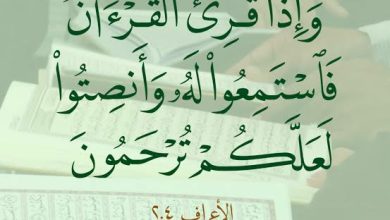 وَإِذَا قُرِئَ ٱلْقُرْءَانُ
فَٱسْتَمِعُوا۟ لَهُۥ وَأَنصِتُوا۟
لَعَلَّكُمْ تُرْحَمُونَ
الأعراف ٢٠٤